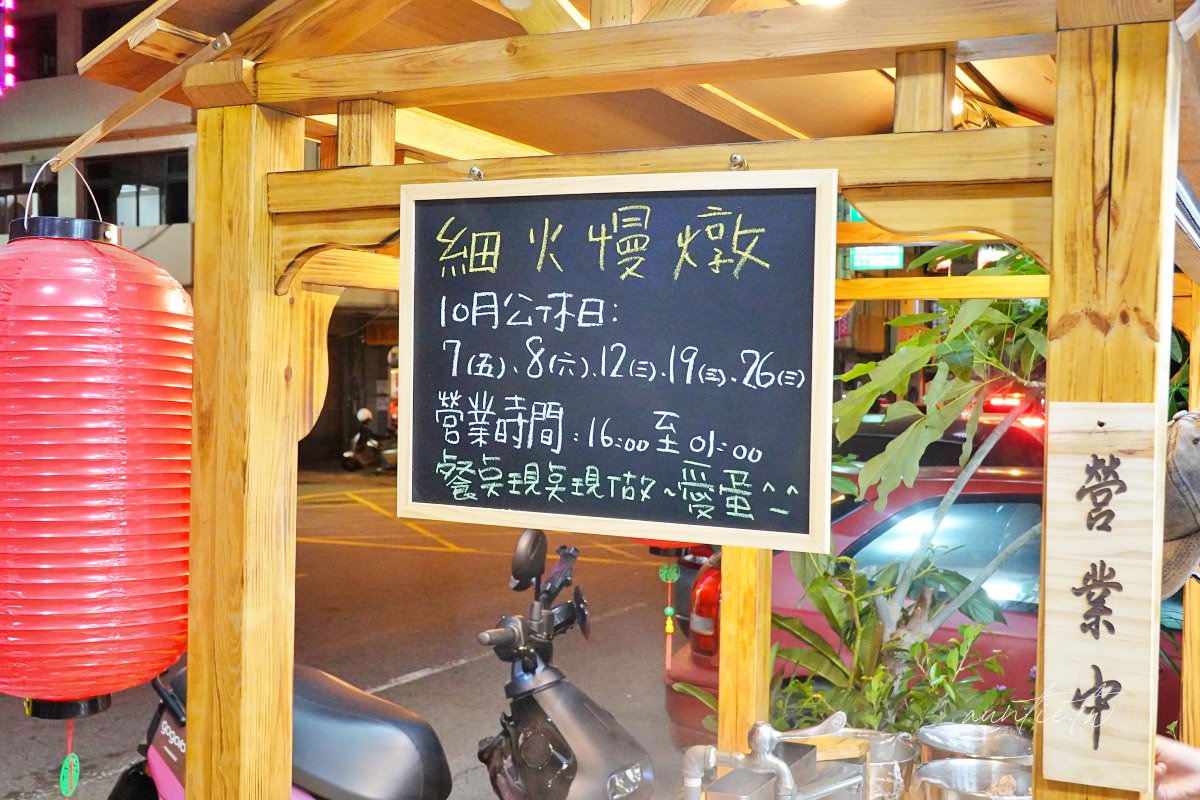 細火慢燉
10月公休日:
7(五)、8(六)、12(三)、19(三)、26(三)
營業時間:16:00至01:00
餐桌現桌現做~愛蛋^_^
營業中
gogoro
auntie.h